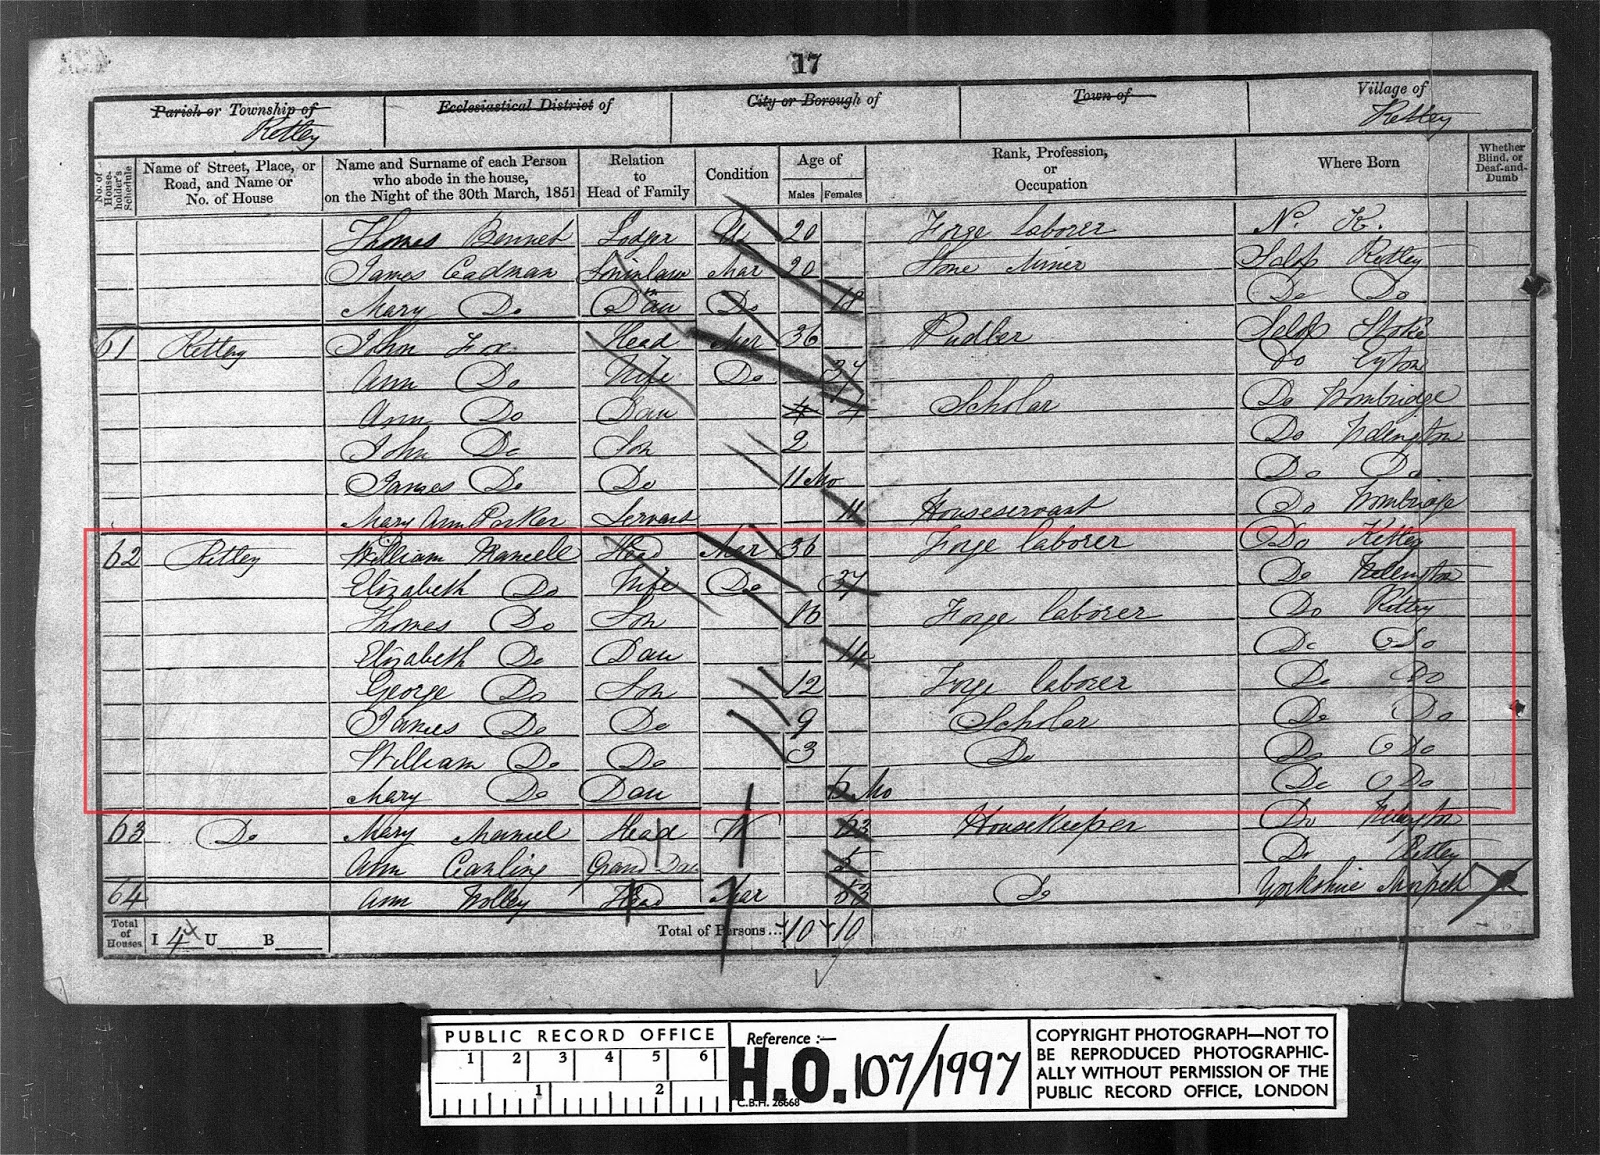 17
Parish or Township of Ecclesiastical District of City or Borough of Town of Village of
Ketley Ketley
No. of House-holder's Schedule Name of Street, Place, or Road, and Name or No. of House Name and Surname of each Person who abode in the house, on the Night of the 30th March, 1851 Relation to Head of Family Condition Age of Males Females Rank, Profession, or Occupation Where Born Whether Blind, or Deaf-and-Dumb
Thomas Bennet Lodger U 20 Forge laborer N. K.
James Cadman Soninlaw Mar 20 Stone Miner Salop Ketley
Mary Do Dau Do 18 Do Do
61 Ketley John Fox Head Mar 36 Pudler Salop Stoke
Ann Do Wife Do 37 Do Eyton
Ann Do Dau 4 4 Scholar Do Wombridge
John Do Son 2 Do Wellington
James Do Do 11 Mo Do Do
Mary Ann Parker Servant 11 Houseservant Do Wombridge
62 Ketley William Mancell Head Mar 36 Forge laborer Do Ketley
Elizabeth Do Wife Do 37 Do Wellington
Thomas Do Son 16 Forge laborer Do Ketley
Elizabeth Do Dau 14 Do Do
George Do Son 12 Forge laborer Do Do
James Do Do 9 Scholar Do Do
William Do Do 3 Do Do Do
Mary Do Dau 6 Mo Do Do
63 Do Mary Mansel Head W 63 Housekeeper Do Wellington
Ann Carling Grand Dau 5 Do Ketley
64 Ann Wolley Head Mar Do Yorkshire
Total of Houses I 4 U B Total of Persons... 10 10
PUBLIC RECORD OFFICE
1 2 3 4 5 6
1 2
Reference :-
H.O. 107/1997
C.B.H. 26668
COPYRIGHT PHOTOGRAPH—NOT TO
BE REPRODUCED PHOTOGRAPHIC-
ALLY WITHOUT PERMISSION OF THE
PUBLIC RECORD OFFICE, LONDON